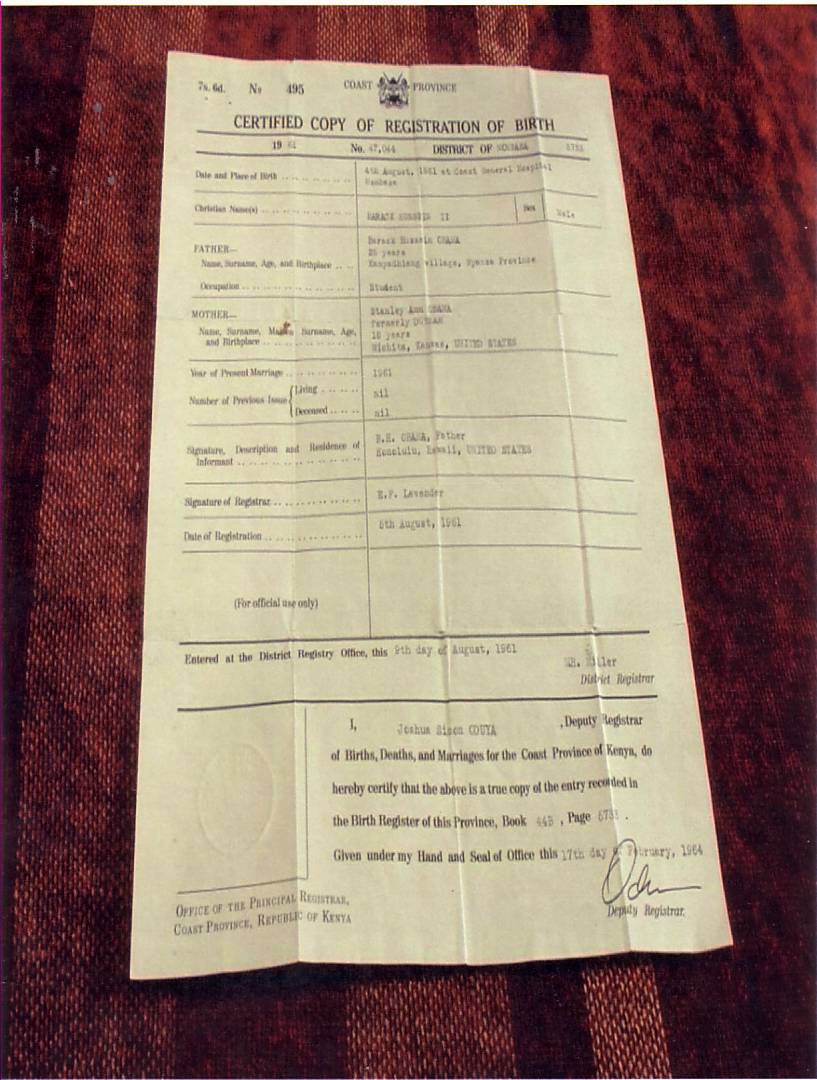 7s. 6d. No 495 COAST PROVINCE
CERTIFIED COPY OF REGISTRATION OF BIRTH
19 61 No. 47,044 DISTRICT OF MOMBASA 5733
Date and Place of Birth 4th August, 1961 at Coast General Hospital
Mombasa
Christian Name(s) BARACK HUSSEIN II Sex Male
FATHER—
Name, Surname, Age, and Birthplace Barack Hussein OBAMA
25 years
Kanyadhiang village, Nyanza Province
Occupation Student
MOTHER—
Name, Surname, Maiden Surname, Age,
and Birthplace
Stanley Ann OBAMA
formerly DUNHAM
18 years
Wichita, Kansas, UNITED STATES
Year of Present Marriage 1961
Number of Previous Issue
Living nil
Deceased nil
Signature, Description and Residence of
Informant
B.H. OBAMA, Father
Honolulu, Hawaii, UNITED STATES
Signature of Registrar E.F. Lavender
Date of Registration 5th August, 1961
(For official use only)
Entered at the District Registry Office, this 9th day of August, 1961
Miller
District Registrar
I, Joshua Simon ODUYA , Deputy Registrar
of Births, Deaths, and Marriages for the Coast Province of Kenya, do
hereby certify that the above is a true copy of the entry recorded in
the Birth Register of this Province, Book 44B , Page 5733 .
Given under my Hand and Seal of Office this 17th day of February, 1964
Deputy Registrar.
OFFICE OF THE PRINCIPAL REGISTRAR,
COAST PROVINCE, REPUBLIC OF KENYA